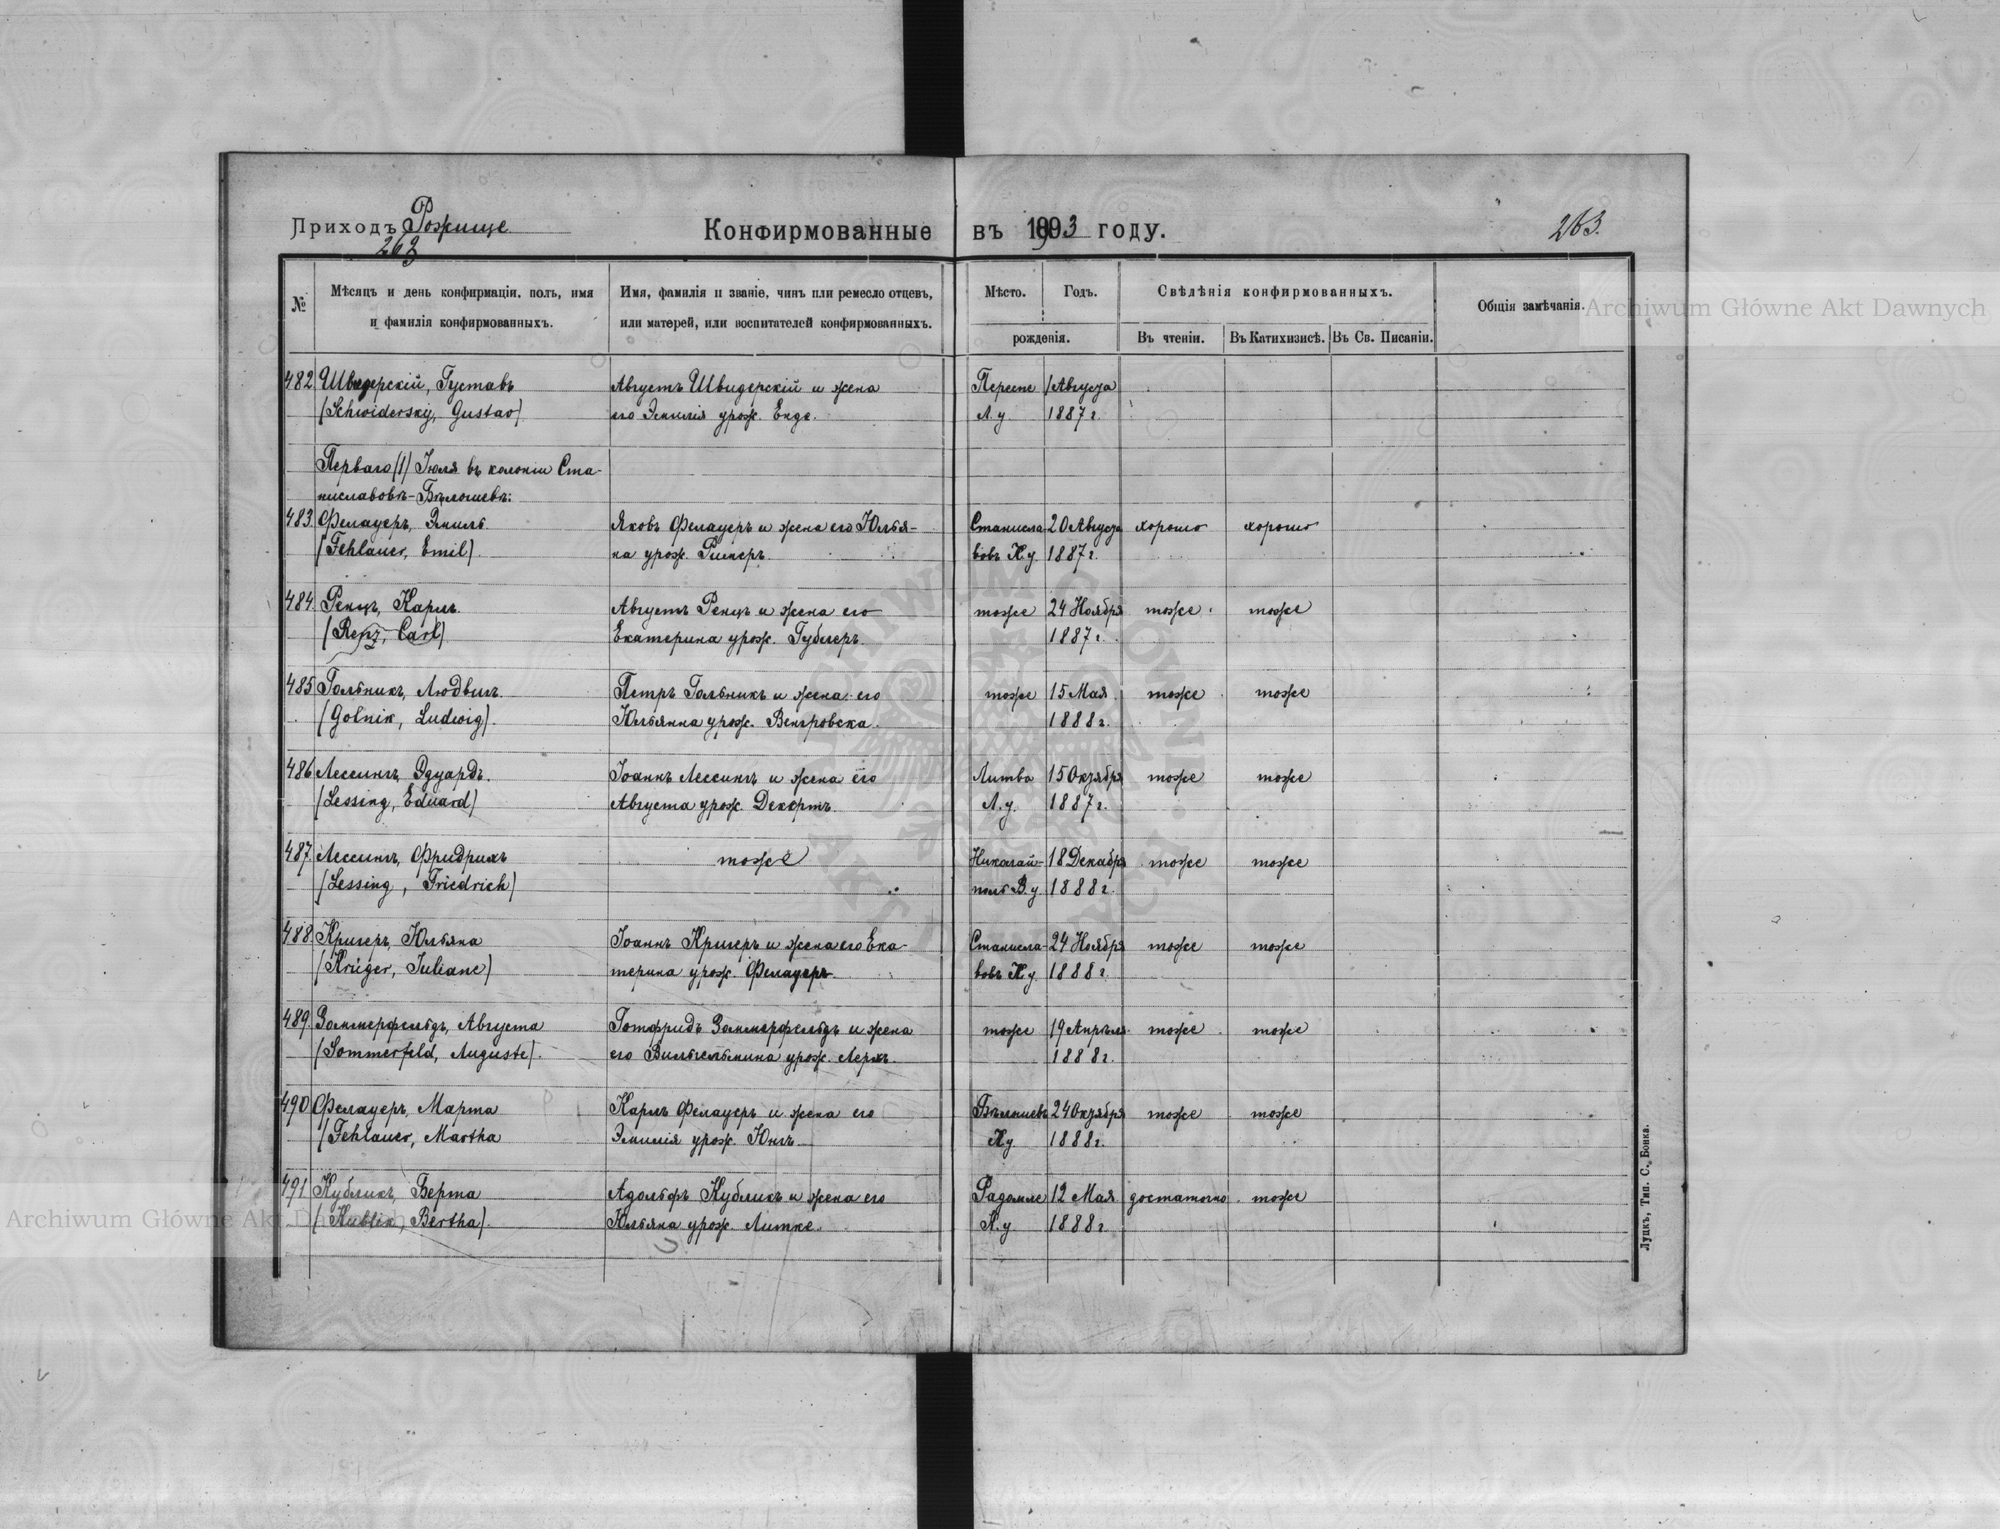 Приходъ Рожище
263
Конфирмованные въ 1903 году.
263.
№
Мѣсяцъ и день конфирмаціи, полъ, имя и фамилія конфирмованныхъ.
Имя, фамилія и званіе, чинъ или ремесло отцевъ, или матерей, или воспитателей конфирмованныхъ.
Мѣсто.
Годъ.
рожденія.
Свѣдѣнія конфирмованныхъ.
Въ чтеніи.
Въ Катихизисѣ.
Въ Св. Писаніи.
Общія замѣчанія.
482. Швидерскій, Густавъ Августъ Швидерскій и жена Пересне 1 Августа
(Schwidersky, Gustav) его Эмилія урож. Енде. Л. у. 1887 г.
Перваго (1) Іюля въ колоніи Ста-
ниславовъ-Бѣлошевъ:
483. Фелауеръ, Эмиль Яковъ Фелауеръ и жена его Юлья- Станисла- 20 Августа хорошо хорошо
(Fehlauer, Emil). на урож. Римеръ. вовъ К у. 1887 г.
484. Ренцъ, Карлъ Августъ Ренцъ и жена его тоже 24 Ноября тоже тоже
(Renz, Carl) Екатерина урож. Гублеръ. 1887 г.
485. Гольникъ, Людвигъ. Петръ Гольникъ и жена его тоже 15 Мая тоже тоже
(Golnik, Ludwig). Юльянна урож. Венгровска. 1888 г.
486. Лессингъ, Эдуардъ. Іоаннъ Лессингъ и жена его Литва 15 Октября тоже тоже
(Lessing, Eduard) Августа урож. Декертъ. Л. у. 1887 г.
487. Лессингъ, Фридрихъ тоже Николай- 18 Декабря тоже тоже
(Lessing, Friedrich) поль В. у. 1888 г.
488. Кригеръ, Юльяна Іоаннъ Кригеръ и жена его Ека- Станисла- 24 Ноября тоже тоже
(Krüger, Juliane) терина урож. Фелауеръ. вовъ К у. 1888 г.
489. Заммерфельдъ, Августа Готфридъ Заммерфельдъ и жена тоже 19 Апрѣля тоже тоже
(Sommerfeld, Auguste). его Вильгельмина урож. Лерхъ. 1888 г.
490. Фелауеръ, Марта Карлъ Фелауеръ и жена его Бѣлошевъ 24 Октября тоже тоже
(Fehlauer, Martha Эмилія урож. Юнгъ. К у 1888 г.
491 Кубликъ, Берта Адольфъ Кубликъ и жена его Радомле 12 Мая достаточно тоже
(Kublik, Bertha). Юльяна урож. Литке. Л. у 1888 г.
Луцкъ, Тип. С. Бонка.
Archiwum Główne Akt Dawnych
Archiwum Główne Akt Dawnych
ARCHIWUM GŁÓWNE AKT DAWNYCH